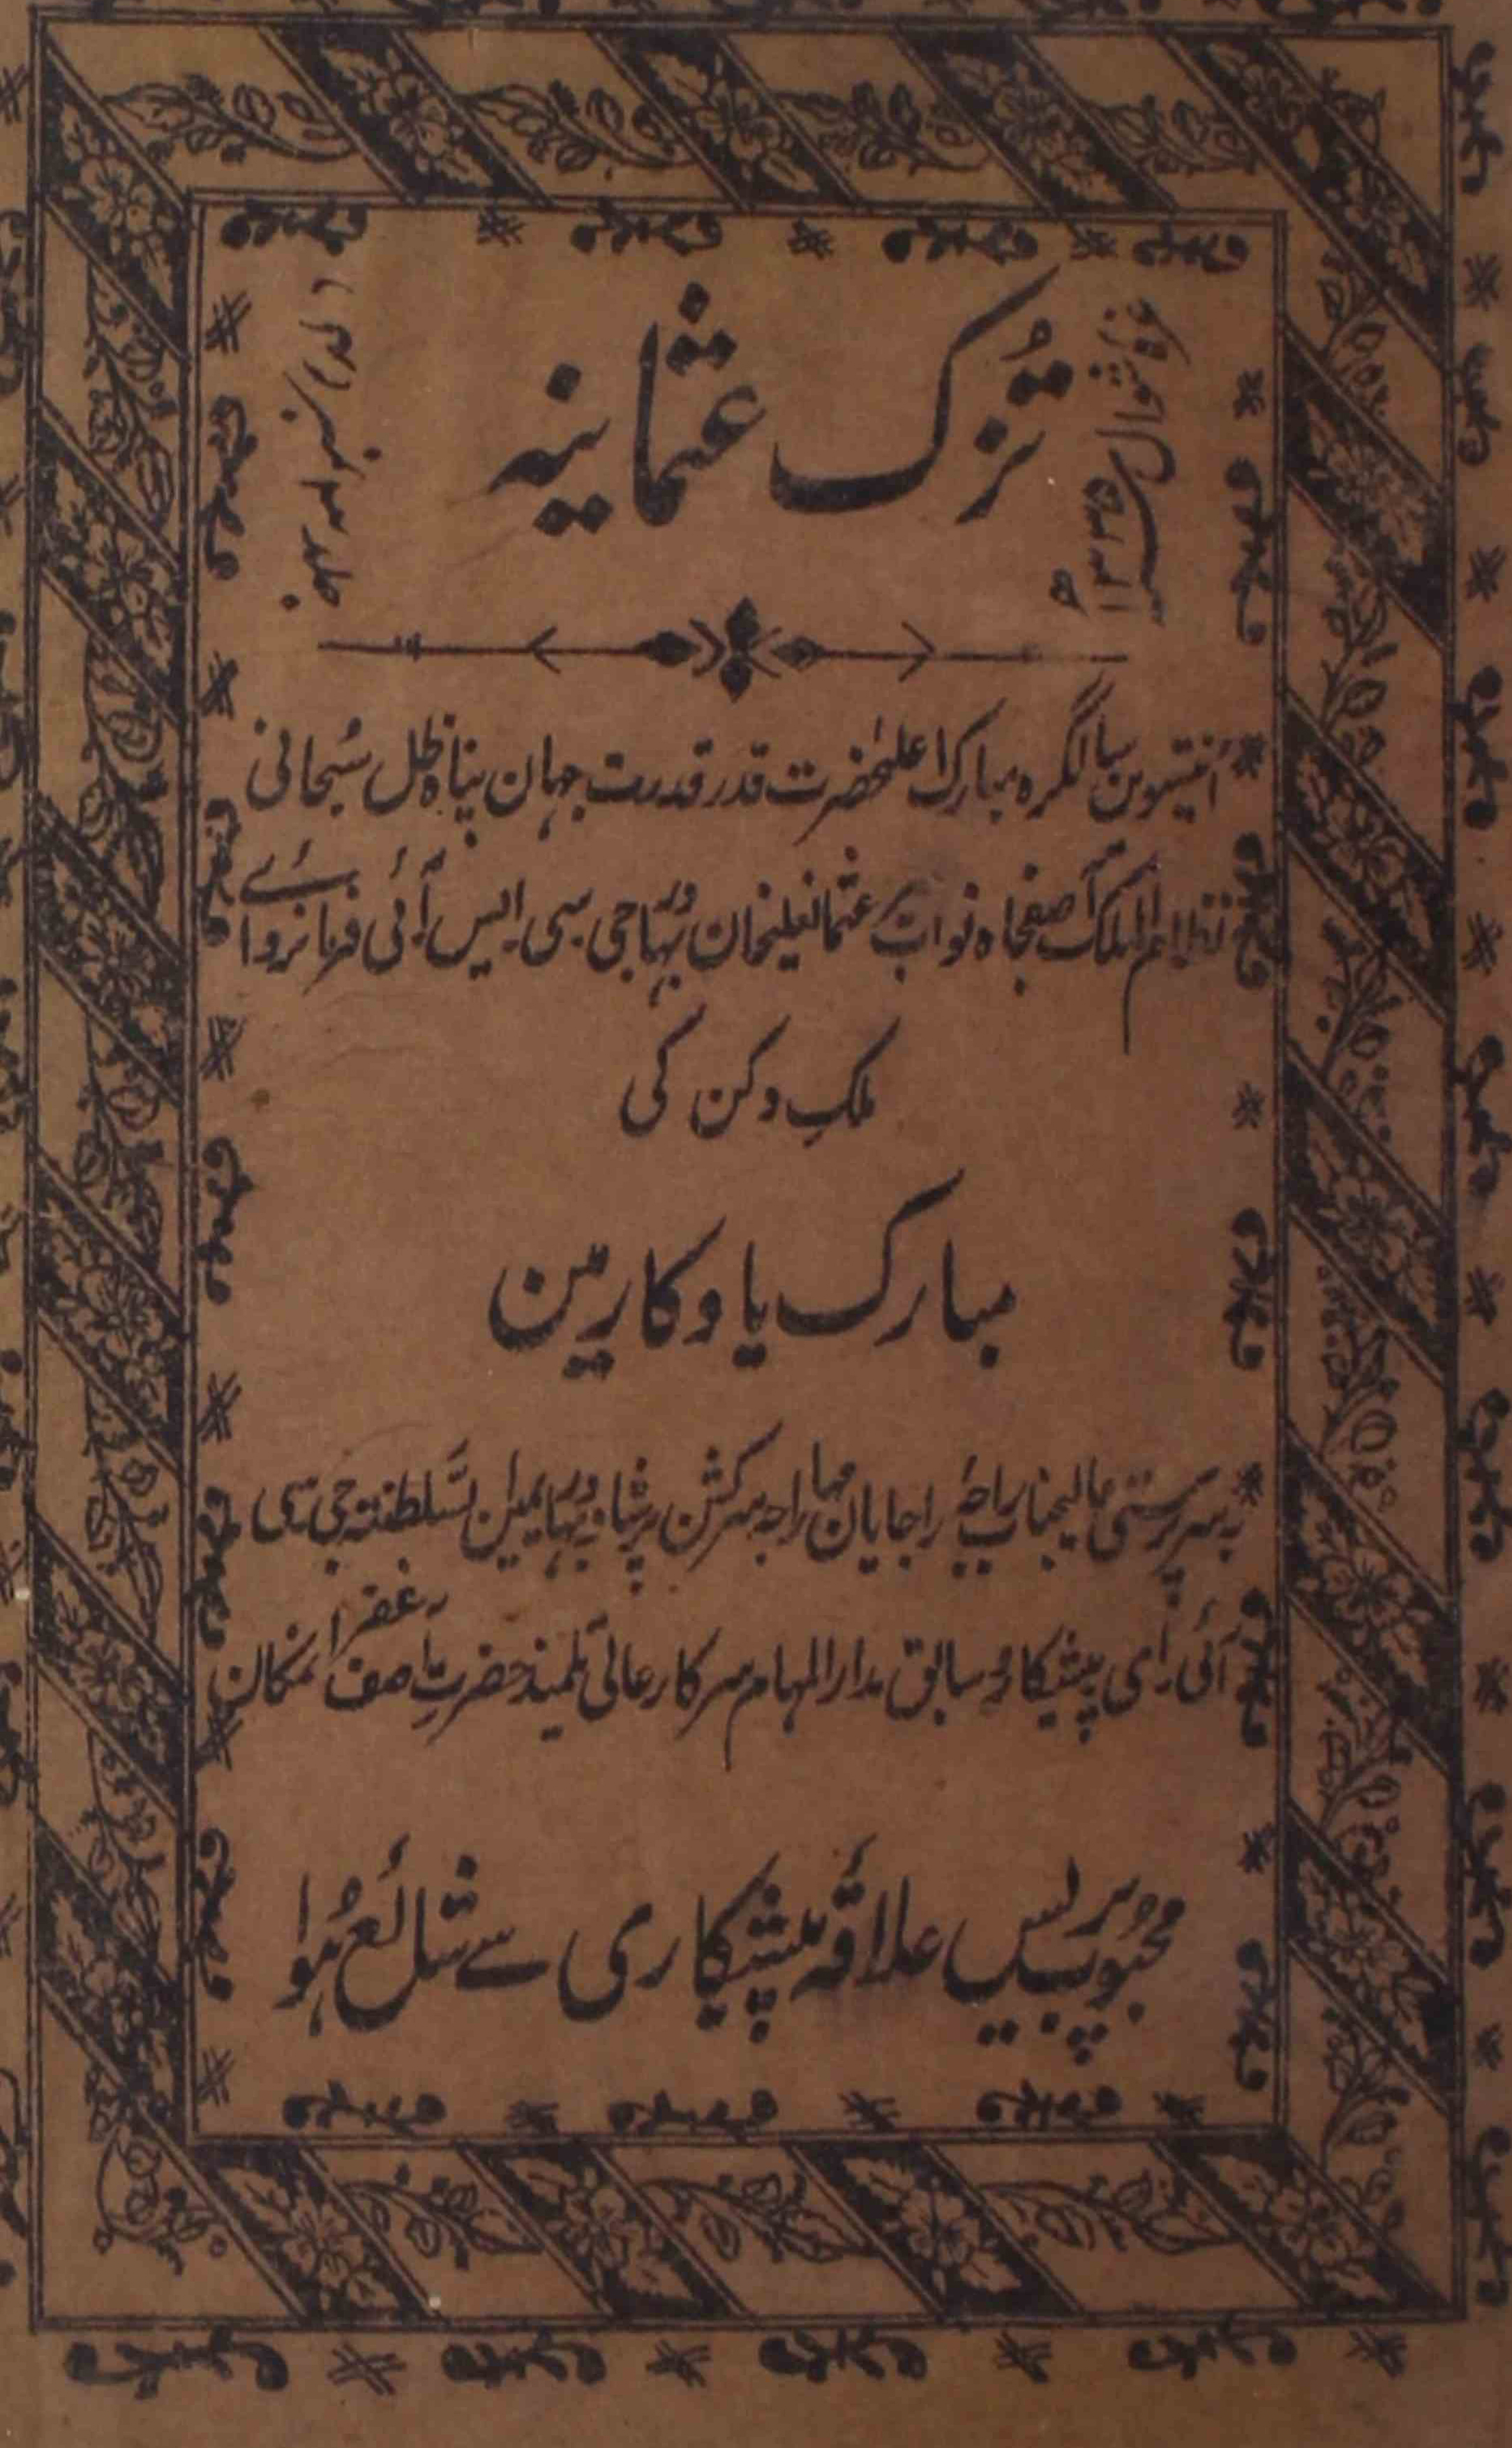 تُزک عثمانیہ
غرہ شوال ۱۳۳۵ھ
جلد سوم نمبر
اُنتیسوین سالگرہ مبارک اعلیٰحضرت قدر قدرت جہان پناہ ظل سُبحانی
نظام الملک آصفجاہ نواب میر عثمانعلیخان بہادر جی سی ایس آئی فرمانروائے
ملکِ دکن کی
مبارک یادگارین
بہ سرپرستی عالیجناب راجۂ راجایان مہاراجہ سرکشن پرشاد بہادر یمین السَّلطنتہ جی سی
آئی ای پیشکار و سابق مدارالمہام سرکار عالی تلمیذ حضرتِ آصف غفران مکان
محبوب پریس علاقۂ پیشکاری سے شائع ہُوا